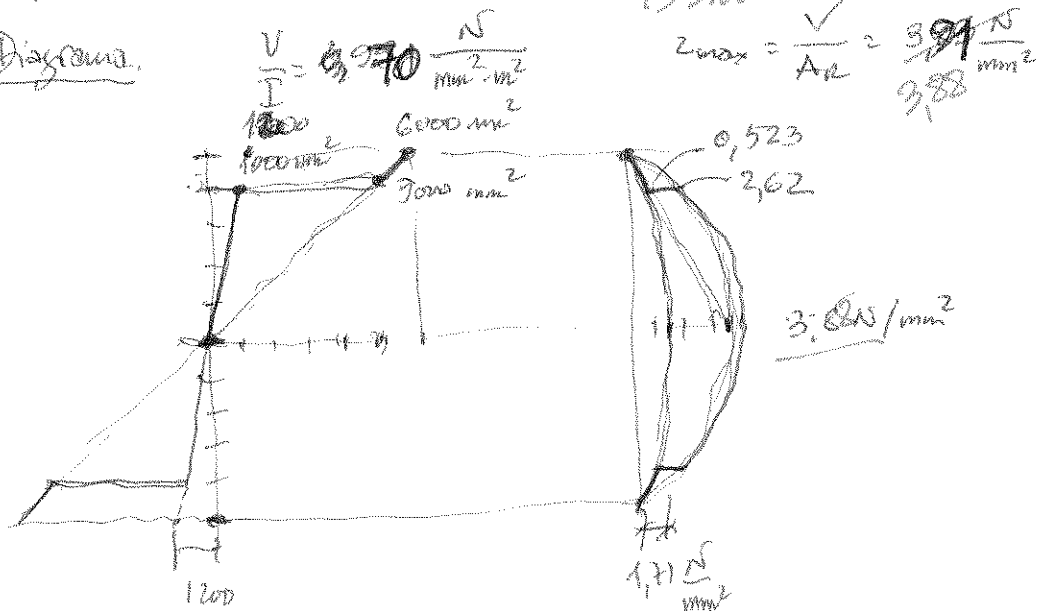 Diagrama.
V/I = 70 N/(mm²·m²)
τmax = V/AR = 3,91 N/mm²
3,88
1000 mm²
6000 mm²
5000 mm²
0,523
2,62
3,88 N/mm²
1200
1,71 N/mm²